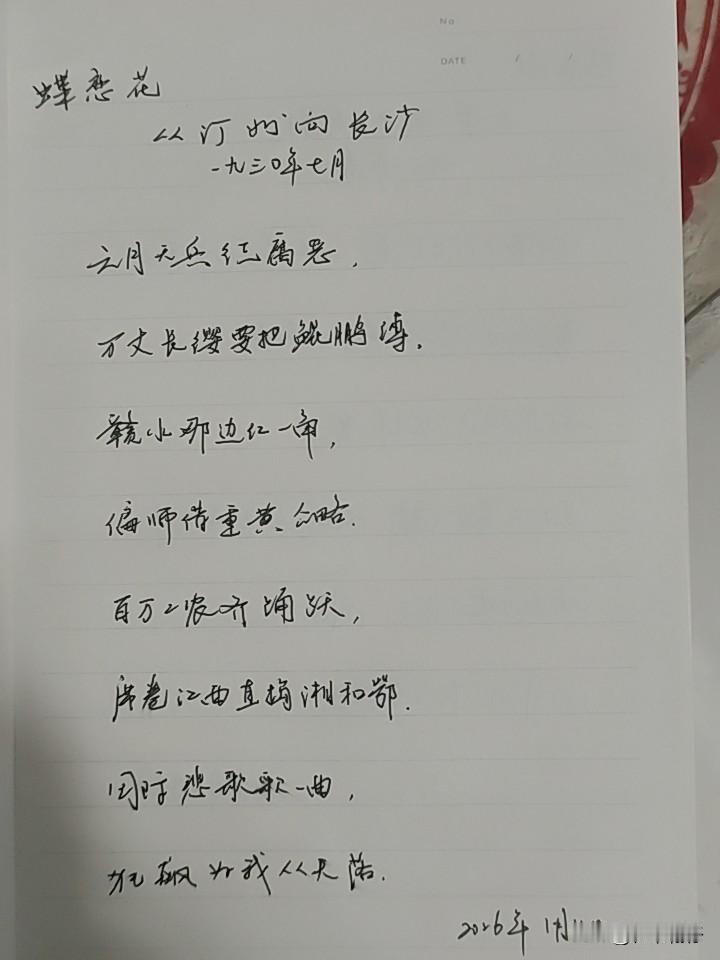 No
DATE / /
蝶恋花
从汀州向长沙
一九三〇年七月
六月天兵征腐恶，
万丈长缨要把鲲鹏缚。
赣水那边红一角，
偏师借重黄公略。
百万工农齐踊跃，
席卷江西直捣湘和鄂。
国际悲歌歌一曲，
狂飙为我从天落。
2026年1月